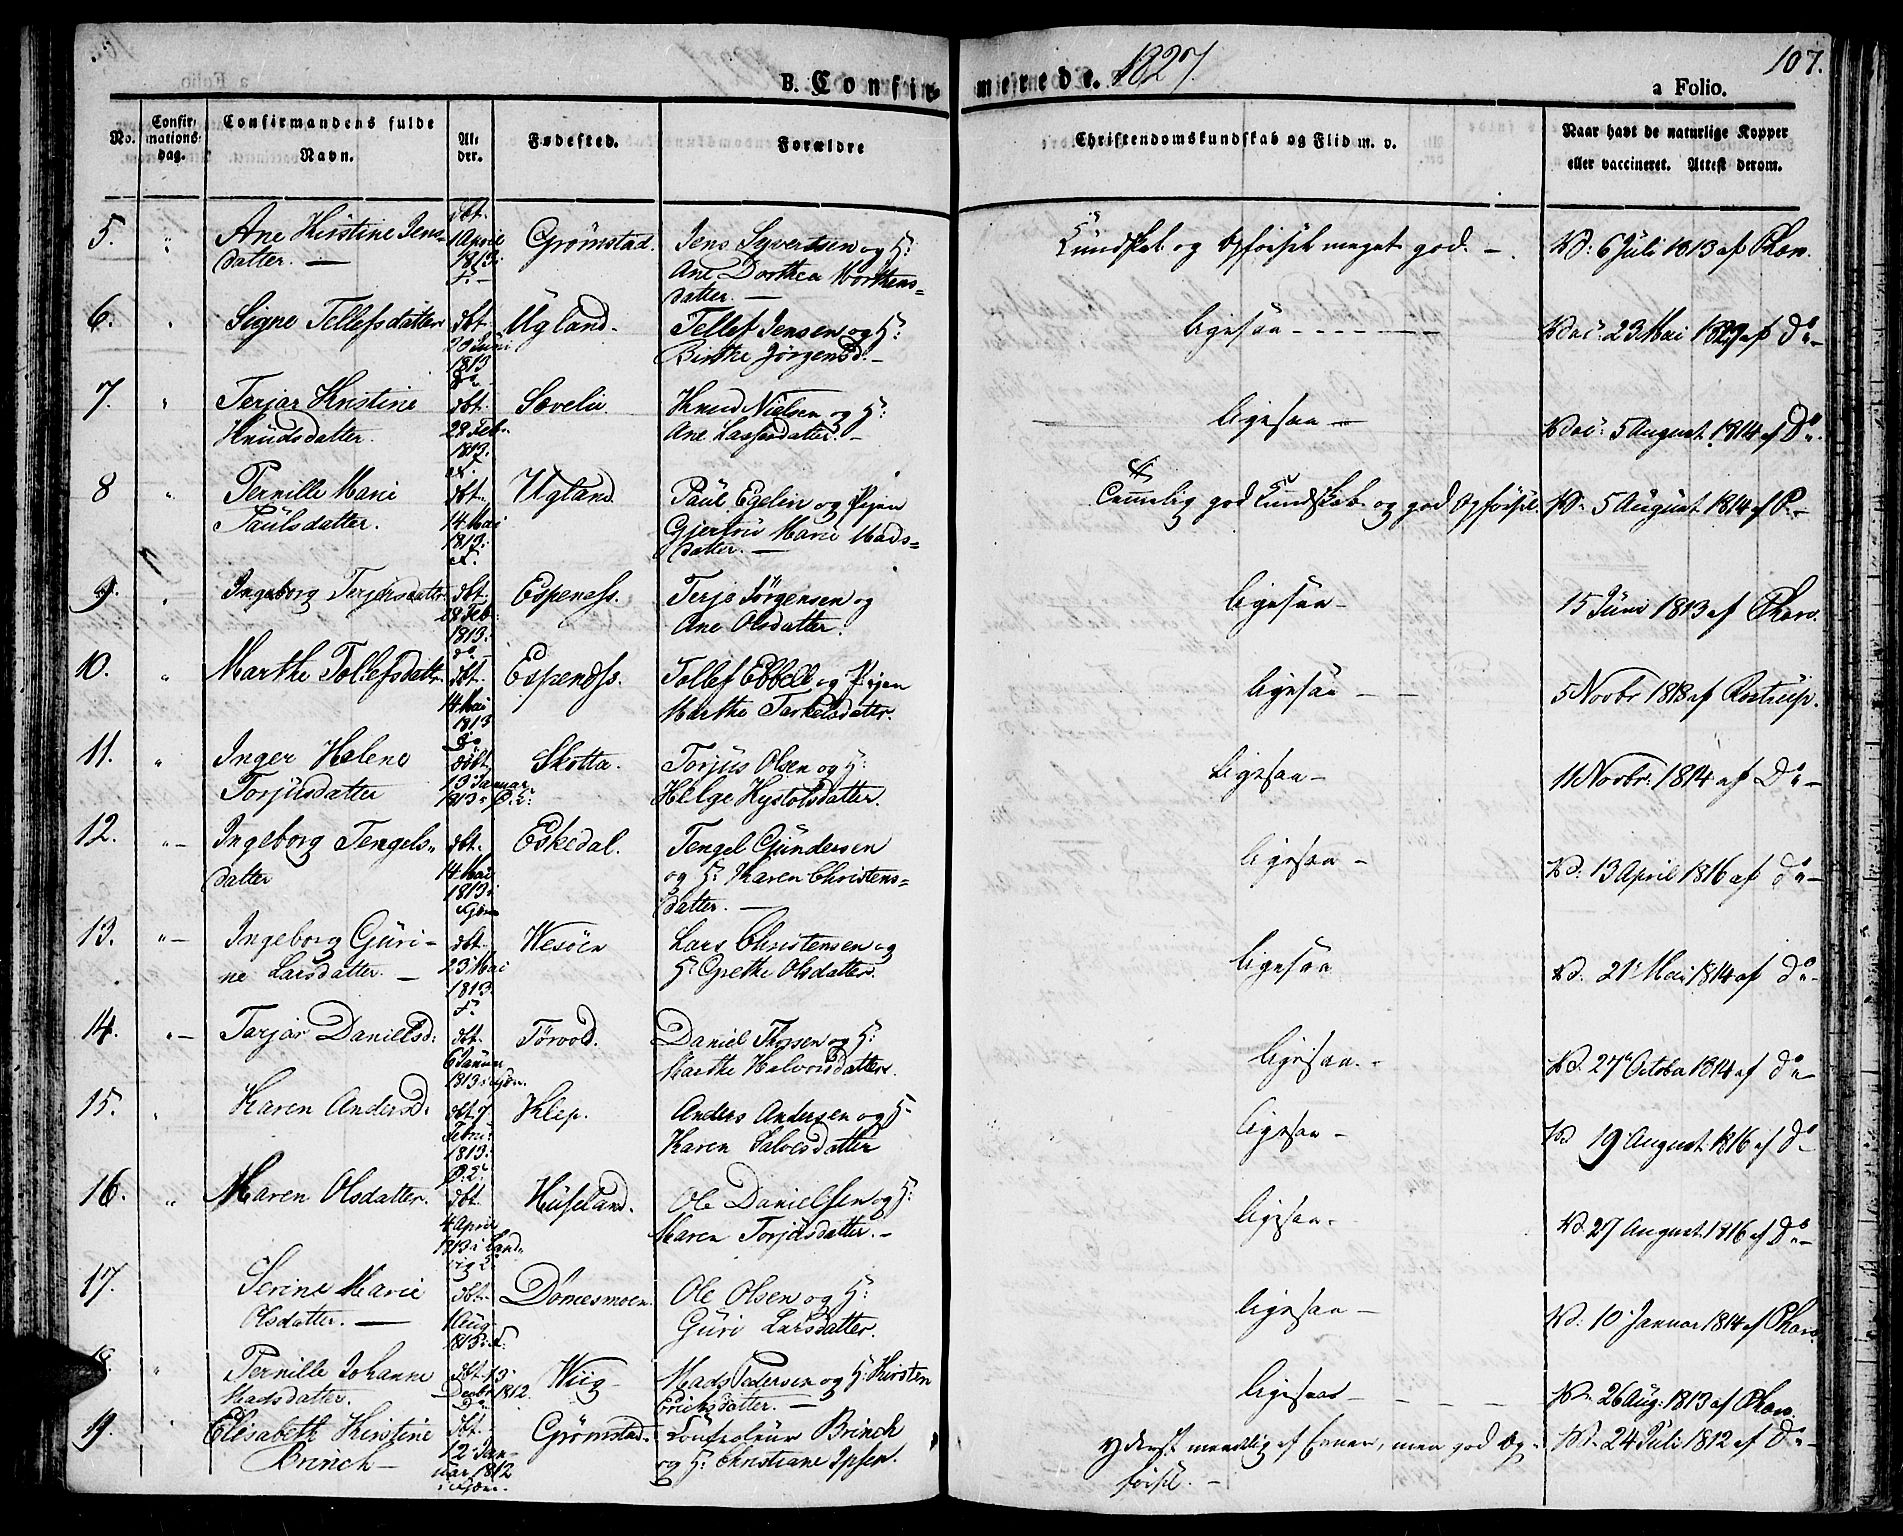 B. Confirmerede. 1827. 107.
a Folio.
No.
Confirmationsdag.
Confirmandens fulde Navn.
Alder.
Fødested.
Forældre
Christendomskundskab og Flid m. v.
Naar havt de naturlige Kopper eller vaccineret. Attest derom.
5. " Ane Kirstine Jens- dbt. 1 April 1813 Grømstad. Jens Syvertsen og H: Kundskab og Opførsel meget god. - Vd: 6 Juli 1813 af
datter. — Ane Dorthea Morthens=
datter. —
6. " Signe Tellefsdatter dbt. 20 Juni 1813 Ugland. Tellef Jensen og H: ligesaa - - - - Vac: 23 Mai af do -
Birthe Jörgensd. -
7. " Terjer Kirstine dbt. 28 Feb. 1813. Knud Nielsen og H: ligesaa - Vac: 5 August 1814 af Do.
Knudsdatter. Ane datter. -
8 " Pernille Marie dbt. 14 Mai 1813. Ugland. Paul Egelin og Pigen Temmelig god Kundskab og god Opførsel. Vd. 5 August 1814 af
Paulsdatter. Marie Mads=
datter. —
9. " Ingeborg Terjesdatter dbt. 28 Feb. 1813. Espenes. Terje Jørgensen og ligesaa - 15 Juni 1813 af
Ane Olsdatter.
10. " Marthe Tollefsdatr. dbt. 14 Mai 1813 Espenes. Tollef Ebbell og Pigen ligesaa - - 5 Novbr 1813 af Rostrup.
Marthe Tarkelsdatter.
11. " Inger Helene døbt. 13 Januar 1813 Skotta. Torjus Olsen og H: ligesaa - 11 Novbr. 1814 af Do -
Torjusdatter Helge datter.
12. " - Ingeborg Tengels= dbt. 14 Mai 1813 Eskedal. Tengel Gundersen ligesaa - Vd. 13 April 1816 af do -
datter og H: Karen Christens=
datter. —
13. " - Ingeborg Guri- dbt. 23 Mai 1813 Vesöen Lars Christensen og ligesaa Vd. 21 Mai 1814 af do -
ne Larsdatter. - H: Grethe Olsdatter.
14. " - Tarjer Danielsd: dbt. 6 Januar 1813 Daniel og H: ligesaa. - Vd. 27 October 1814 af do -
Marthe Halvorsdatter.
15. " Karen Andersd. dbt. 7 Febru. 1813. Klep. Anders Andersen og H: ligesaa - Vd 19 August 1816 af do
Karen Salvesdatter
16. " Maren Olsdatter. dbt. 4 April 1813 i Landvig Huseland. Ole Danielsen og H: ligesaa. Vd. 27 August 1816 af Do -
Maren Torjusdatter. -
17. Serine Marie dbt. 1 Aug. 1813. Dömesmoen. Ole Olsen og H: ligesaa - Vd. 10 Januar 1814 af
Olsdatter. — Guri Larsdatter.
18. " Pernille Johanne dbt. 13 Decbr 1812. Wiig - Mads Pedersen og H: Kirsten ligesaa - - - Vd. 26 Aug: 1813 af
Madsdatter. Erichsdatter. —
19. " Elisabeth Kirstine dbt. 12 Januar 1812 Grömstad. Kontroleur Brinch yderst maadelig af Evner, men god Op- Vd. 24 Juli 1812 af do -
Brinch - og H: Christiane Ipsen. førsel. -